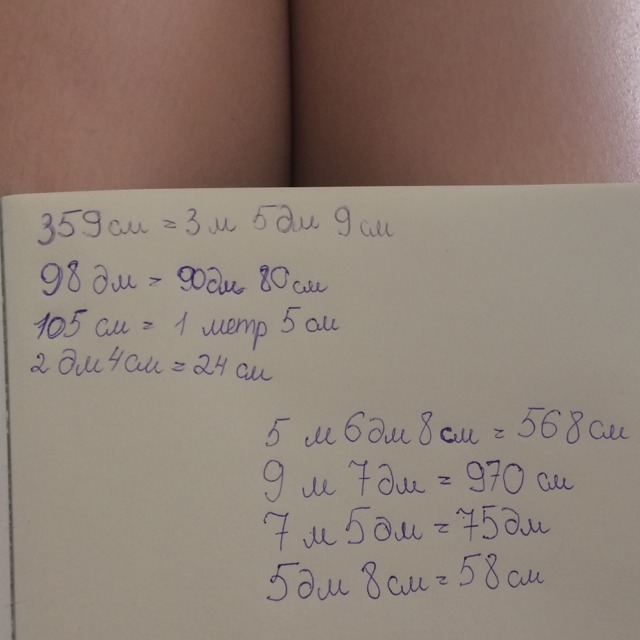 359 см = 3 м 5 дм 9 см
98 дм = 90 дм 80 см
105 см = 1 метр 5 см
2 дм 4 см = 24 см
5 м 6 дм 8 см = 568 см
9 м 7 дм = 970 см
7 м 5 дм = 75 дм
5 дм 8 см = 58 см